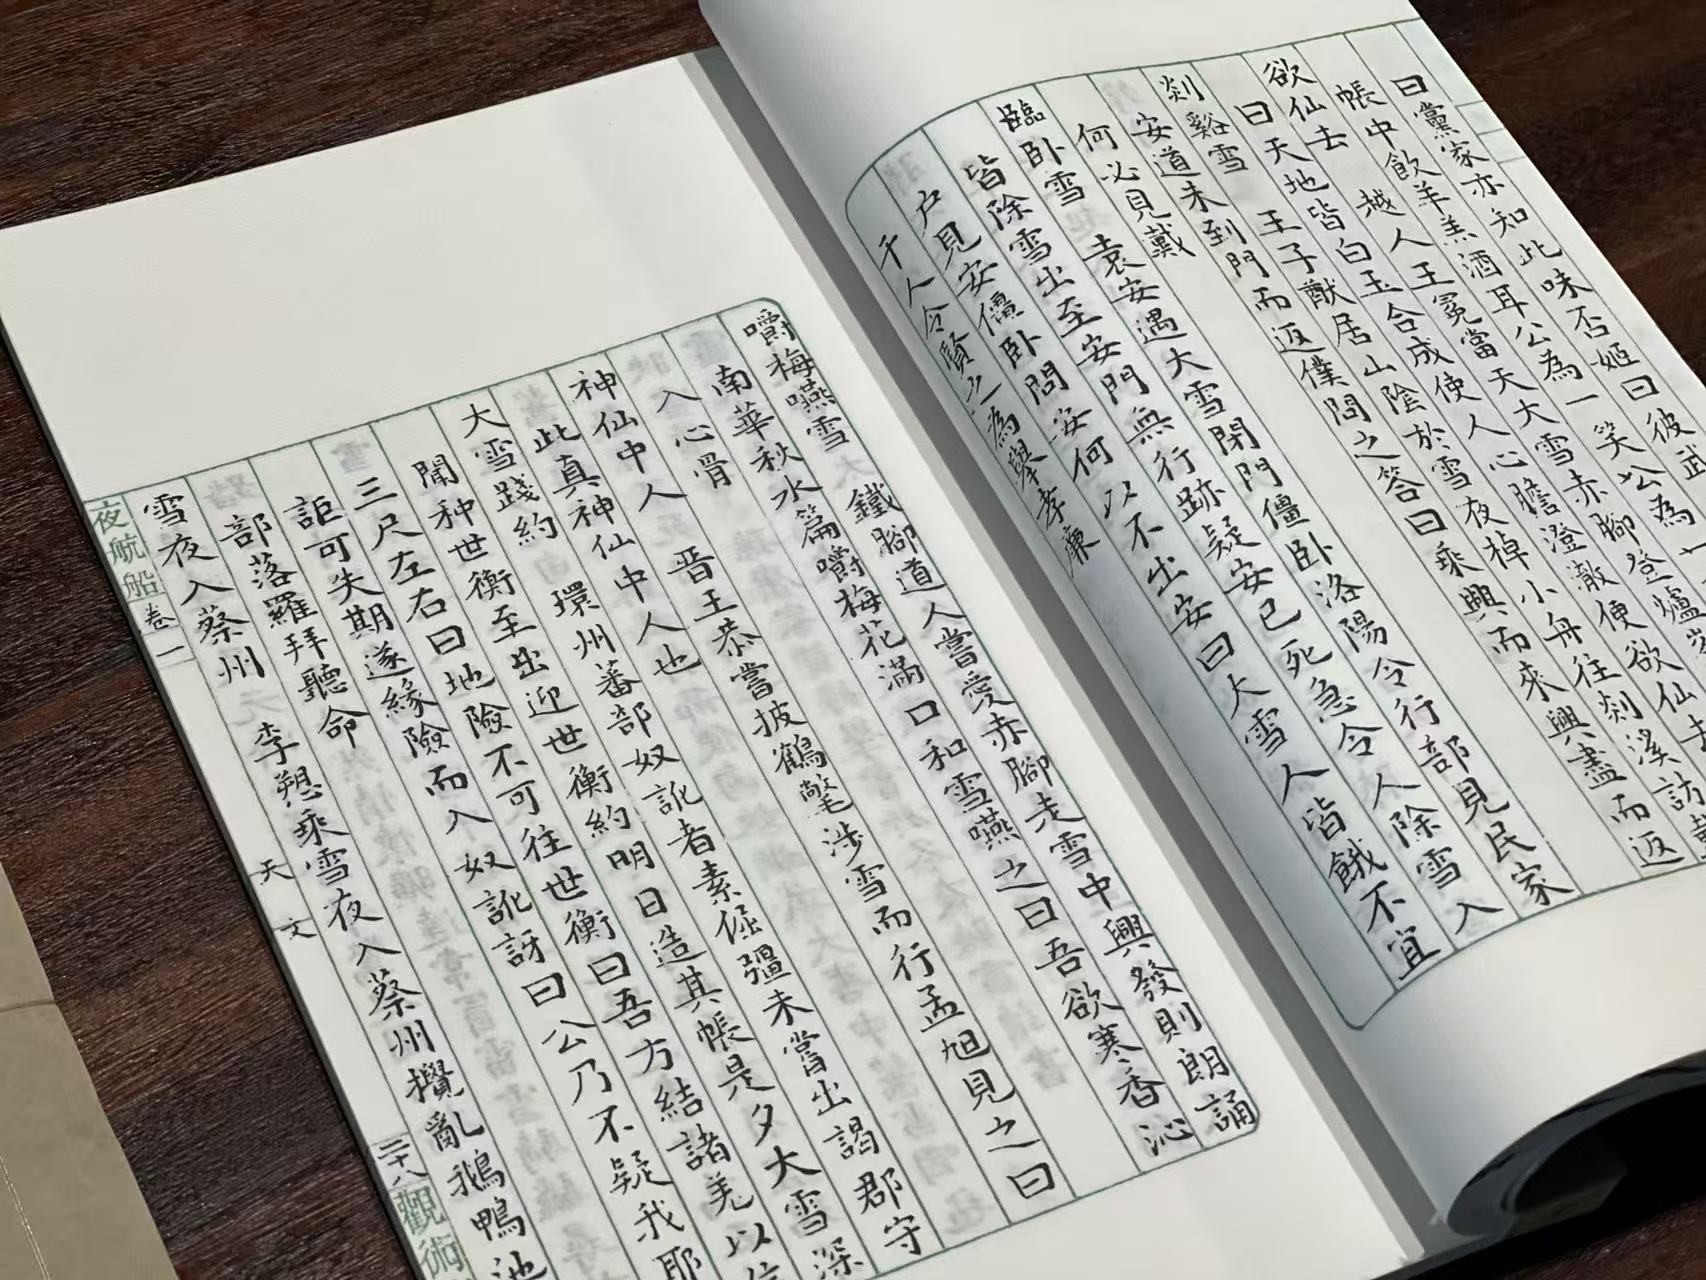 曰黨家亦知此味否姬曰彼武
帳中飲羊羔酒耳公為一笑公為一
欲仙去　越人王冕當天大雪赤腳登爐
曰天地皆白玉合成使人心膽澄澈便欲仙去
剡谿雪　王子猷居山陰於雪夜棹小舟往剡溪訪戴
安道未到門而返僕問之答曰乘興而來興盡而返
何必見戴
臨卧雪　袁安遇大雪閉門僵卧洛陽令行部見民家
皆除雪出至安門無行跡疑安已死急令人除雪入
戶見安僵卧問安何以不出安曰大雪人皆餓不宜
干人令賢之為舉孝廉
嚼梅嚥雪　鐵腳道人嘗愛赤腳走雪中興發則朗誦
南華秋水篇嚼梅花滿口和雪嚥之曰吾欲寒香沁
入心骨
神仙中人　晉王恭嘗披鶴氅涉雪而行孟旭見之曰
此真神仙中人也
大雪踐約　環州蕃部奴訛者素倔彊未嘗出謁郡守
聞种世衡至出迎世衡約明日造其帳是夕大雪深
三尺左右曰地險不可往世衡曰吾方結諸羌以信
詎可失期遂緣險而入奴訛訝曰公乃不疑我耶
部落羅拜聽命
雪夜入蔡州　李愬乘雪夜入蔡州攪亂鵝鴨池
夜航船 卷一　天文　二十八　觀術